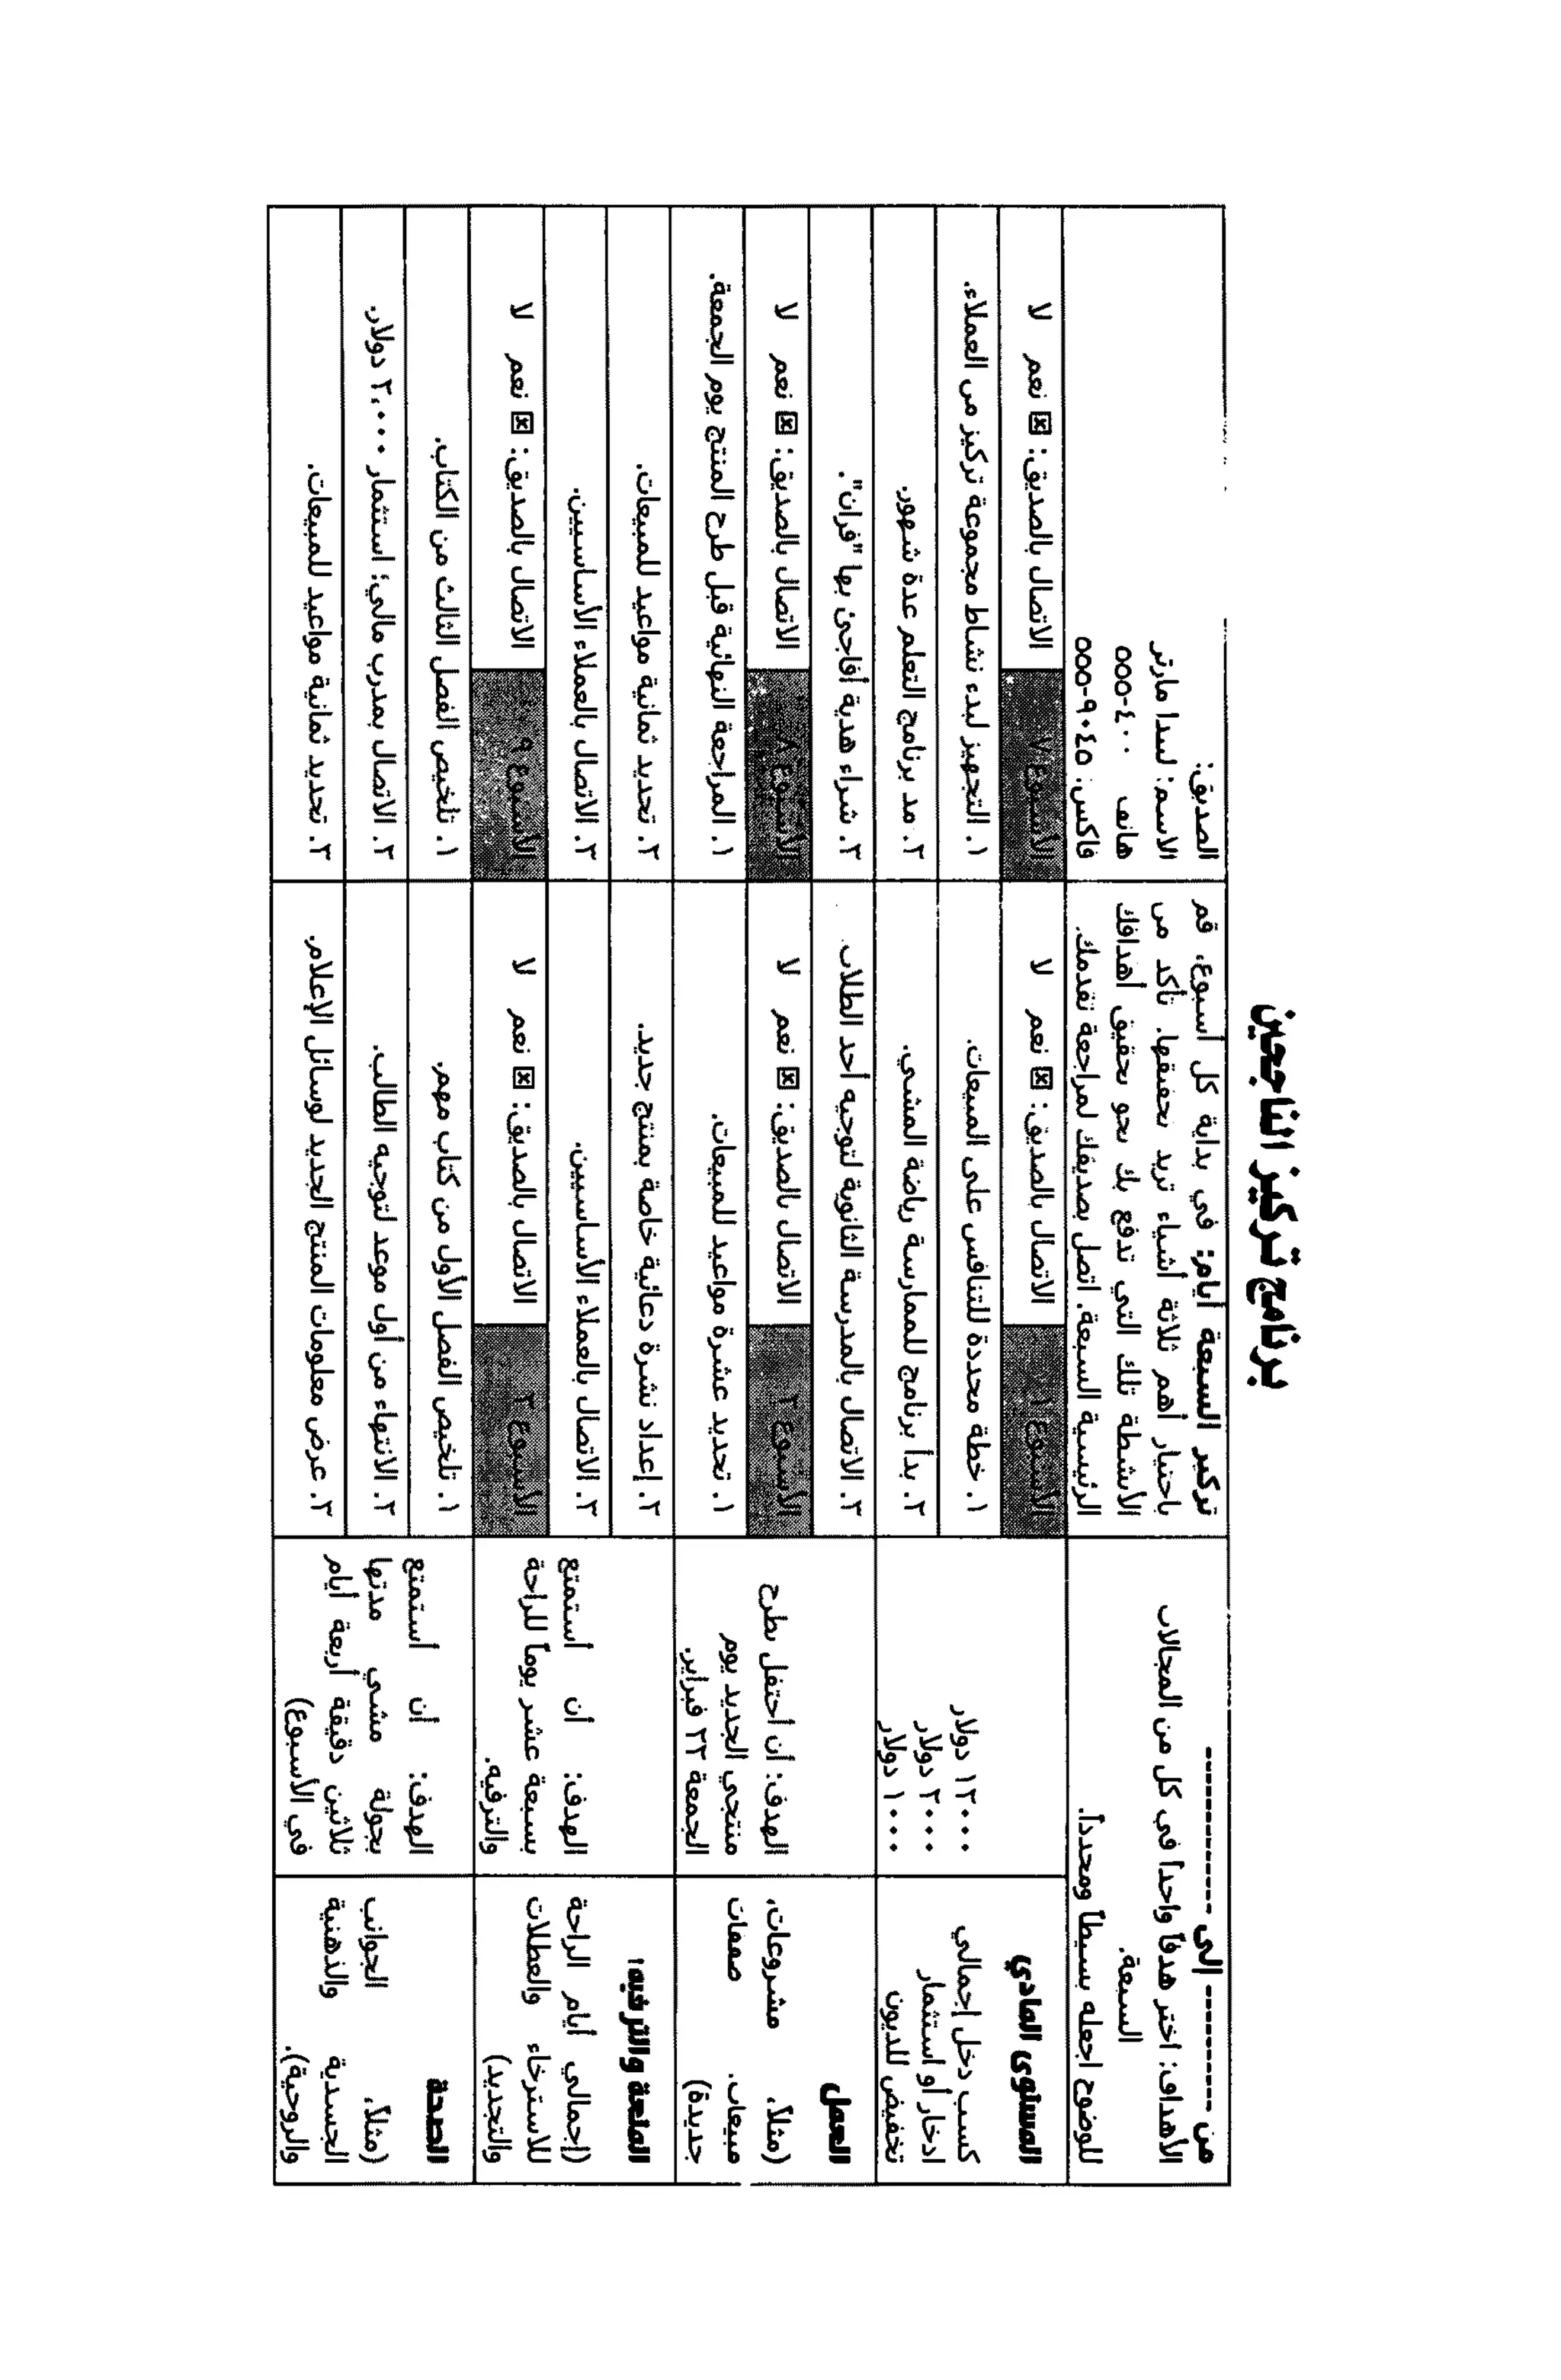 برنامج تركيز الناجحين
من ---------- إلى ------------
الأهداف: اختر هدفاً واحداً في كل من المجالات
السبعة.
للوضوح اجعله بسيطاً ومحدداً.
تركيز السبعة أيام: في بداية كل أسبوع، قم
باختيار أهم ثلاثة أشياء تريد تحقيقها. تأكد من
الأنشطة تلك التي تدفع بك نحو تحقيق أهدافك
الرئيسية السبعة. اتصل بصديقك لمراجعة تقدمك.
الصديق:
الاسم: ليندا مارتر
هاتف ٤٠٠-٥٥٥
فاكس: ٩٠٤٥-٥٥٥
المستوى المادي
كسب دخل إجمالي
ادخار أو استثمار
تخفيض للديون
١٢٠٠٠ دولار
٢٠٠٠ دولار
١٠٠٠ دولار
الأسبوع ١
الاتصال بالصديق: ☒ نعم لا
١. خطة محددة للتنافس على المبيعات.
٢. بدأ برنامج للممارسة رياضة المشي.
٣. الاتصال بالمدرسة الثانوية لتوجيه أحد الطلاب.
الأسبوع ٧
الاتصال بالصديق: ☒ نعم لا
١. التجهيز لبدء نشاط مجموعة تركيز من العملاء.
٢. مد برنامج التعلم عدة شهور.
٣. شراء هدية أفاجئ بها "فران".
العمل
(مثلاً، مشروعات،
مبيعات. صفقات
جديدة)
الهدف: أن أحتفل بطرح
منتجي الجديد يوم
الجمعة ٢٢ فبراير.
الأسبوع ٢
الاتصال بالصديق: ☒ نعم لا
١. تحديد عشرة مواعيد للمبيعات.
٢. إعداد نشرة دعائية خاصة بمنتج جديد.
٣. الاتصال بالعملاء الأساسيين.
الأسبوع ٨
الاتصال بالصديق: ☒ نعم لا
١. المراجعة النهائية قبل طرح المنتج يوم الجمعة.
٢. تحديد ثمانية مواعيد للمبيعات.
٣. الاتصال بالعملاء الأساسيين.
المتعة والترفيه:
(إجمالي أيام الراحة
للاسترخاء والعطلات
والتجديد)
الهدف: أن أستمتع
بسبعة عشر يوماً للراحة
والترفيه.
الأسبوع ٣
الاتصال بالصديق: ☒ نعم لا
١. تلخيص الفصل الأول من كتاب مهم.
٢. الانتهاء من أول موعد لتوجيه الطالب.
٣. عرض معلومات المنتج الجديد لوسائل الإعلام.
الأسبوع ٩
الاتصال بالصديق: ☒ نعم لا
١. تلخيص الفصل الثالث من الكتاب.
٢. الاتصال بمدرب مالي؛ استثمار ٢،٠٠٠ دولار.
٣. تحديد ثمانية مواعيد للمبيعات.
الصحة
(مثلاً، الجوانب
الجسدية والذهنية
والروحية).
الهدف: أن أستمتع
بجولة مشي مدتها
ثلاثين دقيقة أربعة أيام
في الأسبوع)